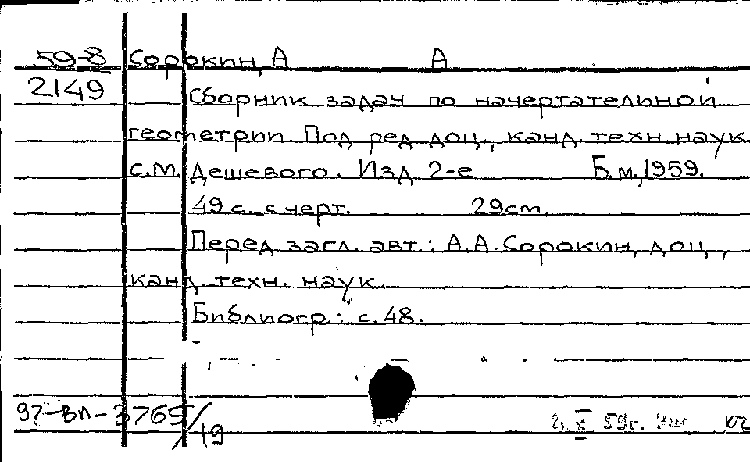 59-8 Сорокин, А А
2149
Сборник задач по начертателиной
геометрии Под ред доц., канд. техн наук
С.М. Дешевого. Изд 2-е Б.м., 1959.
49 с. с черт. 29 cm.
Перед загл. авт.: А.А. Сорокин, доц.,
канд техн. наук
Библиогр: с. 48.
97-вл-3765/19
X 59г.